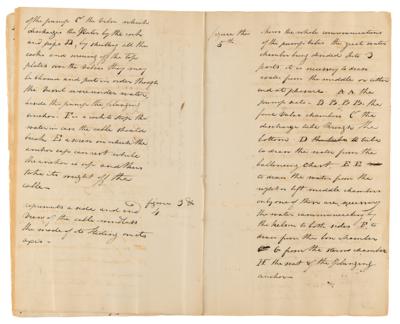 of the pump C the tube which
discharges the Water by the cocks
and pipe H, by shutting all the
cocks and screwing off the top
plates over the Valves they may
be cleaned and put in order though
the Vessel were under water,
inside the pump the plunging
anchor. F is a cock to stop the
water in case the cable should
break, E a screw on which the
anchor caps can rest while
the anchor is up and thus
take its weight off the
cable.
figure 3 &
4
represents a side and end
View of the cable windlass
the mode of its sliding on its
axis.
figure the
5th
shows the whole communications
of the pump tubes the great water
chamber being divided into 3
parts it is necessary to draw
water from the middle or either
end at pleasure. A A the
pump. B B B B the
four Valve chambers C the
discharge tube through the
bottom D the tube
to draw the water from the
ballancing chest. E E
to draw the water from the
right or left middle chambers
only one of them are necessary
the water communicating by
the holes to both sides F. to
draw from the bow chamber
G from the stern chamber
H the seat of the plunging
anchor.